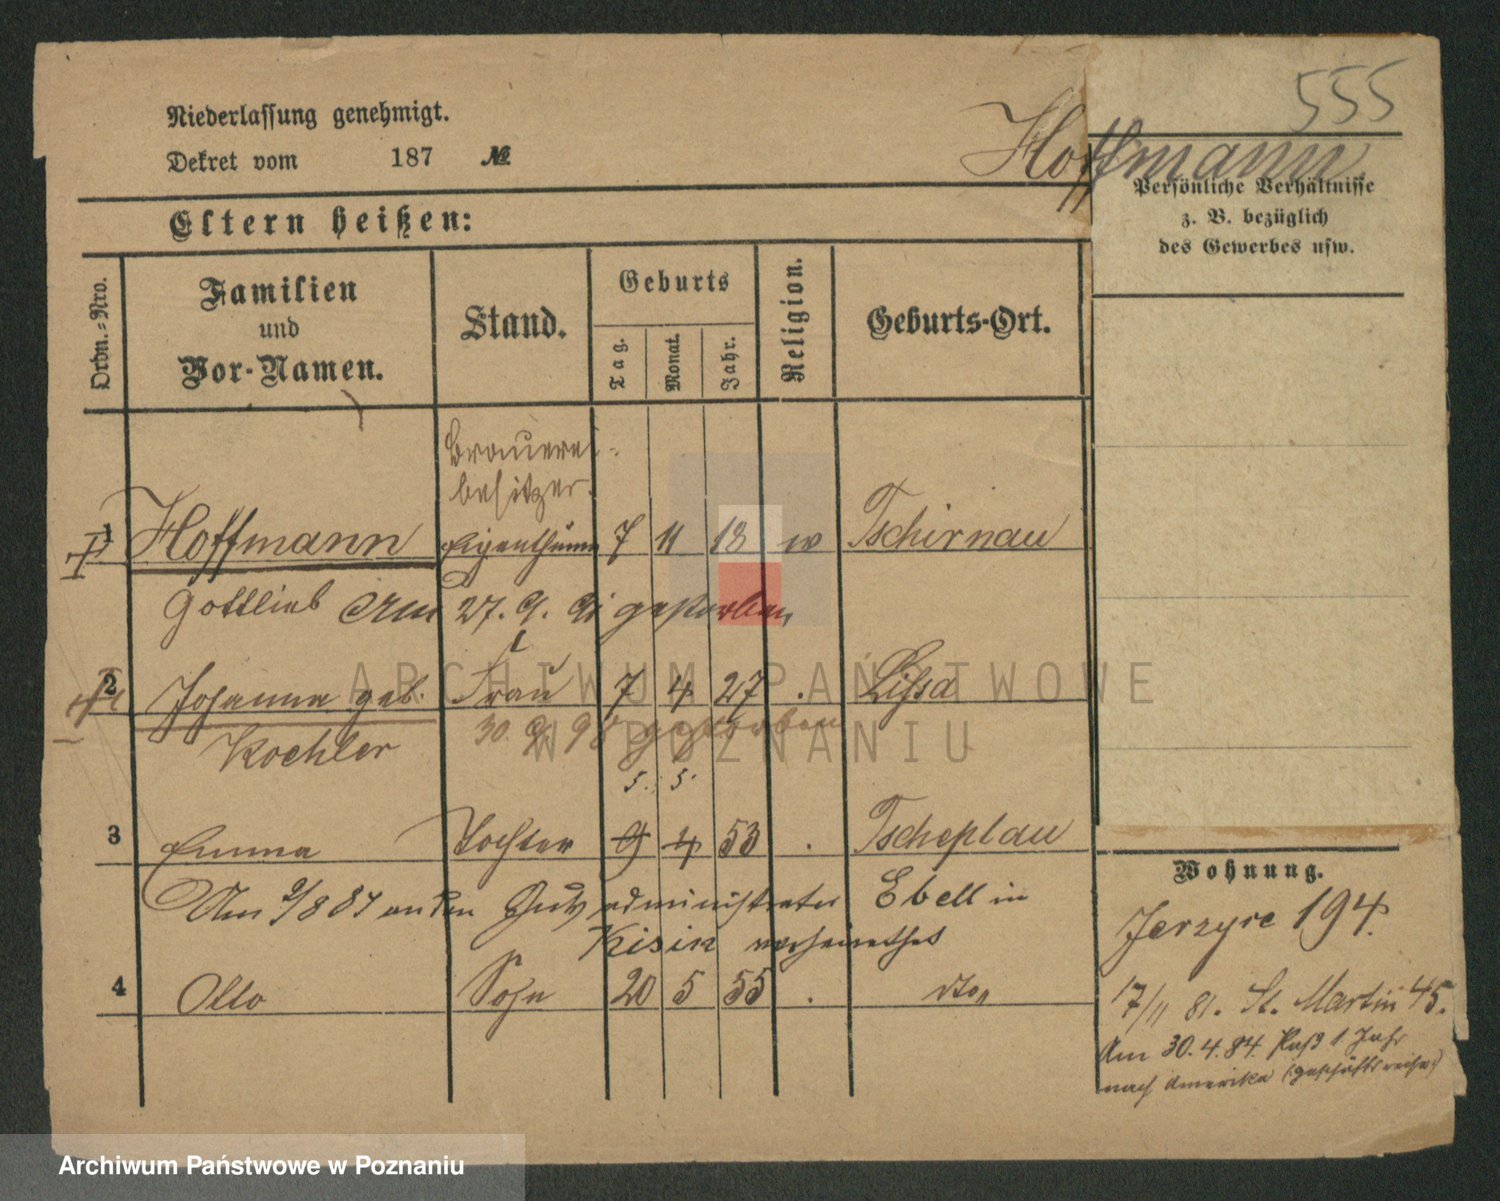 555
Niederlassung genehmigt.
Dekret vom 187 №
Hoffmann
Persönliche Verhältnisse
z. B. bezüglich
des Gewerbes usw.
Eltern heißen:
Ordn.=Nro.
Familien
und
Vor-Namen.
Stand.
Geburts
Tag.
Monat.
Jahr.
Religion.
Geburts-Ort.
Brauerei-
besitzer.
1 Hoffmann Eigenthümer 7 11 18 w Tschirnau
Gottlieb Am 27. 9. 91 gestorben
2 Johanna geb. Frau 7 4 27 . Lissa
Koehler 30. 9. 98 gestorben
5. 5.
3 Emma Tochter 9 4 53 . Tscheplau
Am 9/8 87 an den Gutsadministrator Ebell in
Kisin verheirathet
4 Otto Sohn 20 5 55 . dto
Wohnung.
Jerzyce 194.
17/11 81. St. Martin 45.
Am 30.4.84 Paß 1 Jahr
nach Amerika (:Geschäftsreise:)
ARCHIWUM PAŃSTWOWE
W POZNANIU
Archiwum Państwowe w Poznaniu